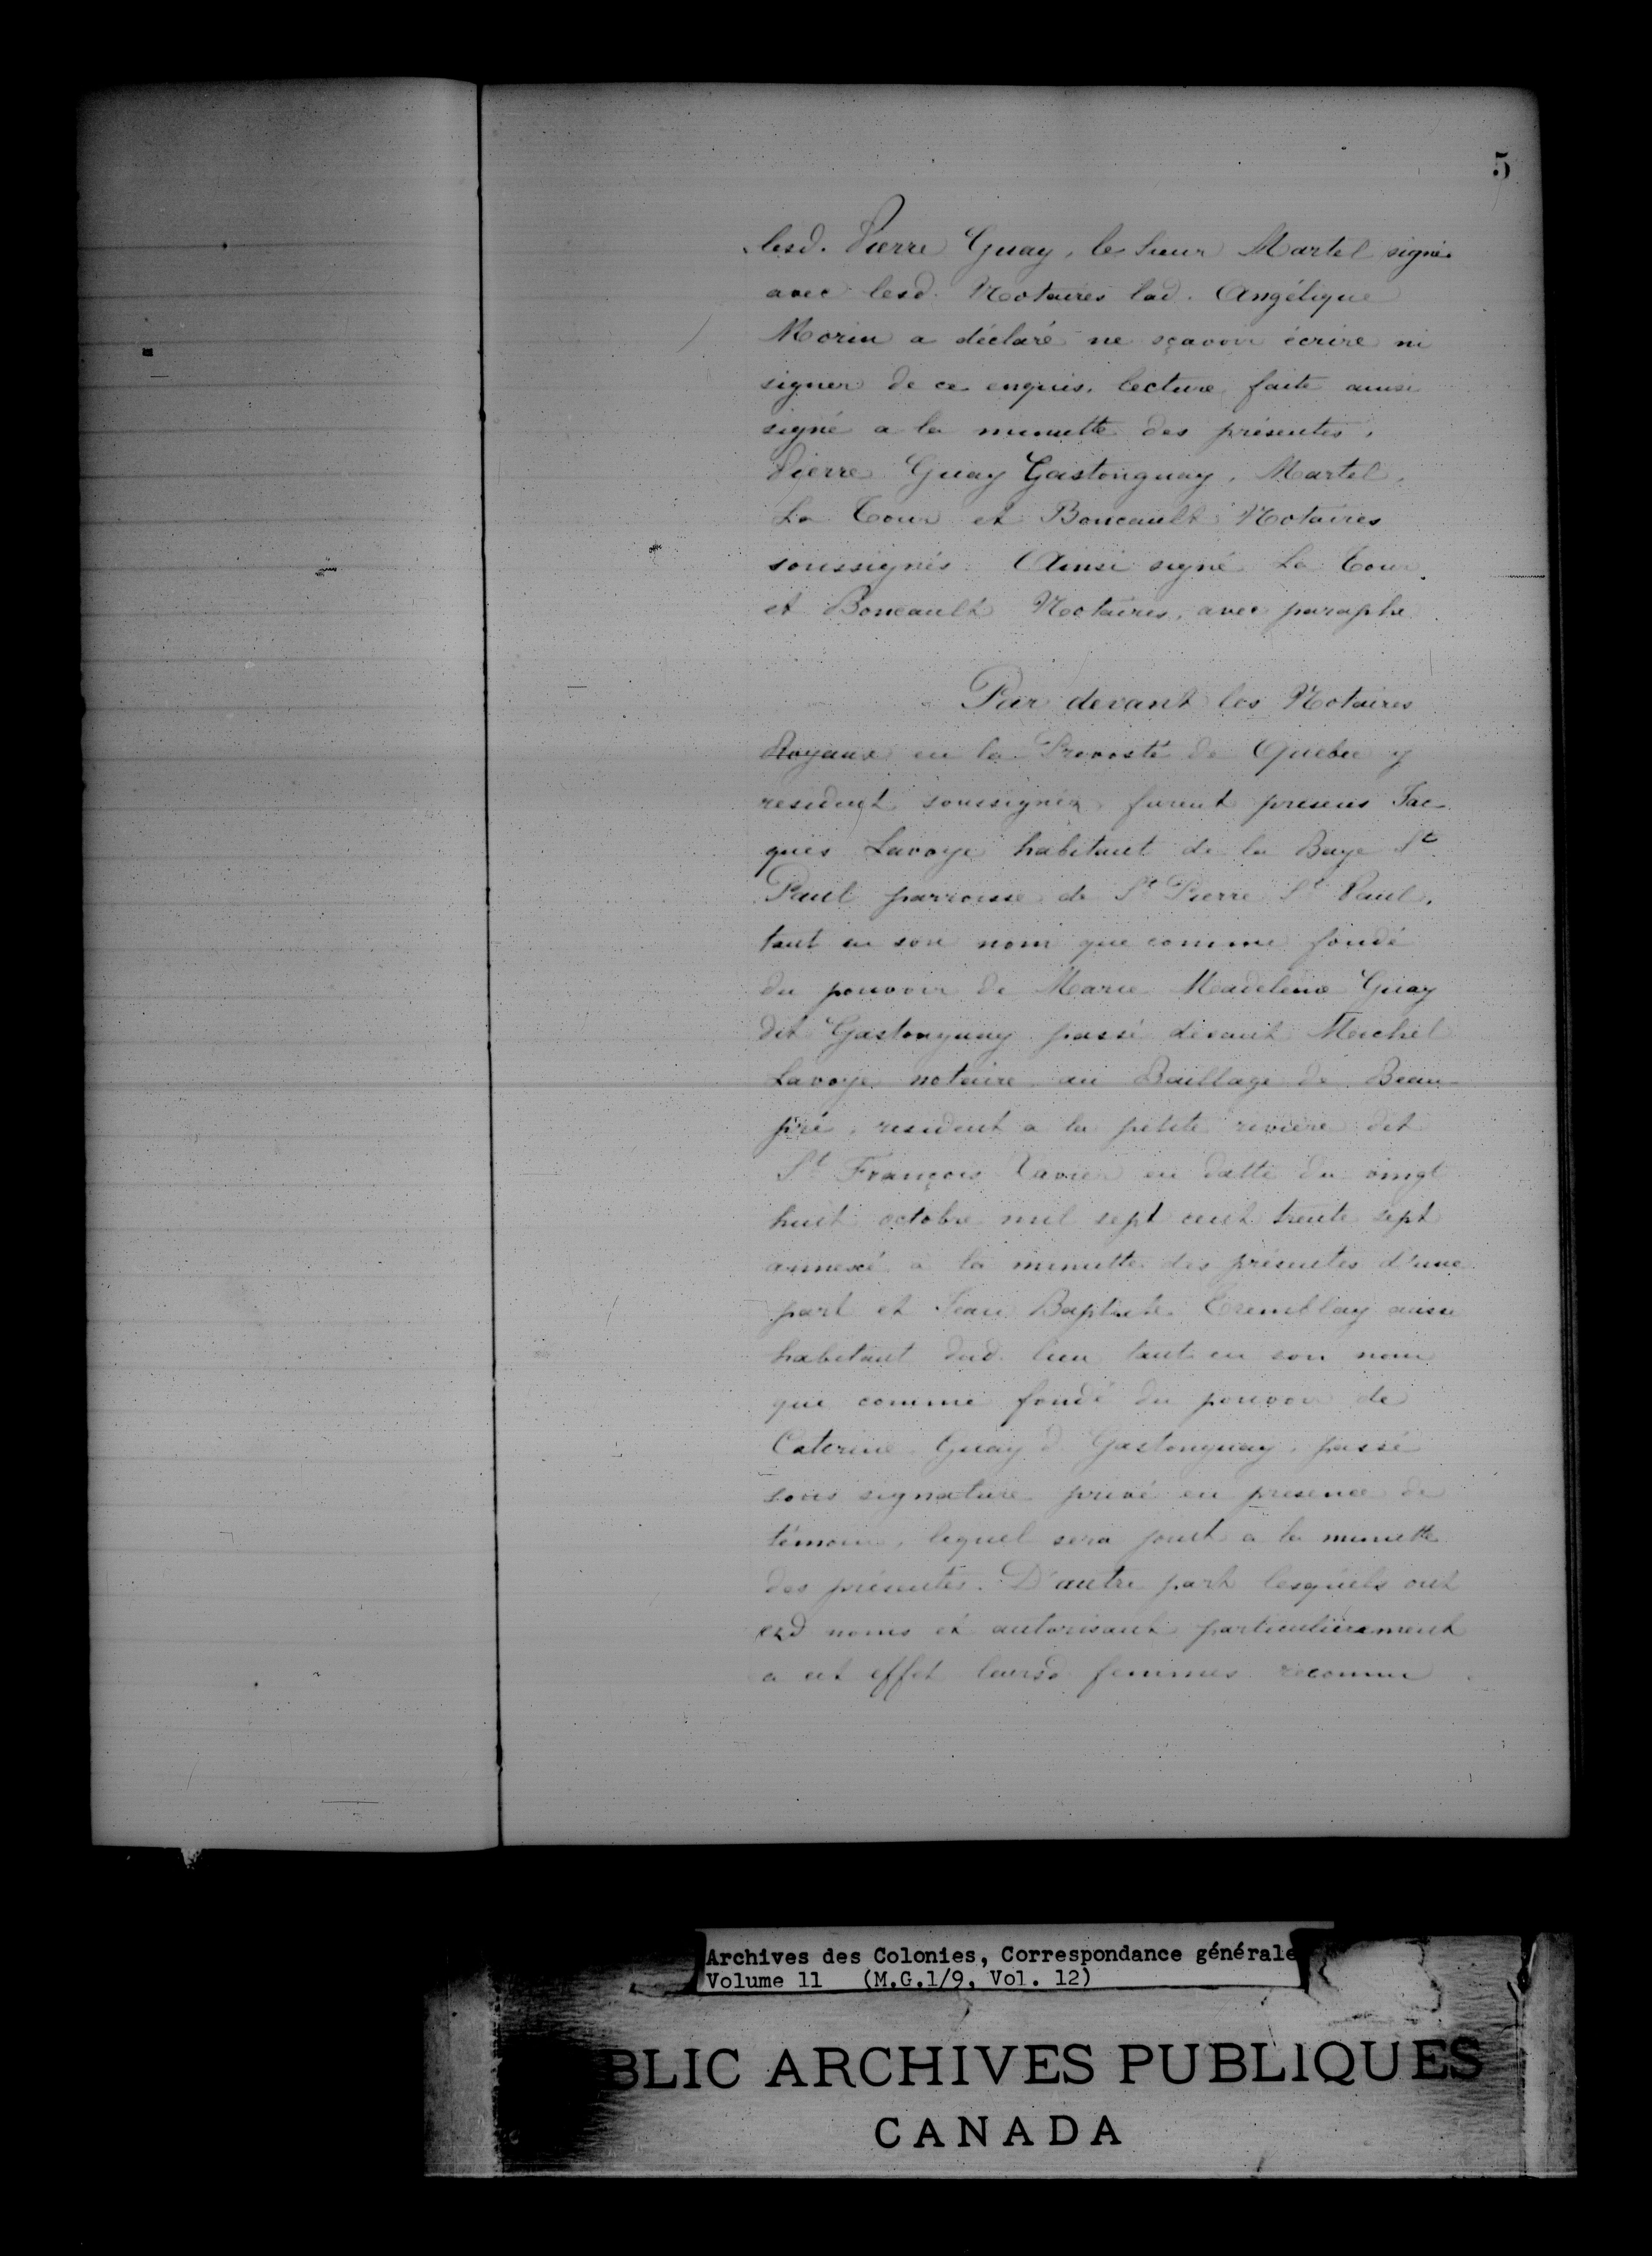 5
lesd. Pierre Guay, le Sieur Martel signé
avec lesd. Notaires lad. Angélique
Morin a déclaré ne sçavoir écrire ni
signer de ce enquis. lecture faite ainsi
signé a la minutte des présentes,
Pierre Guay Gastonguay, Martel,
La Tour et Boucault Notaires
soussignés. Ainsi signé La Tour
et Boucault Notaires, avec paraphe
Par devant les Notaires
Royaux en la Prevosté de Quebec y
resident soussignéz furent presens Jac-
ques Lavoye habitant de la Baye St
Paul parroisse de St Pierre St Paul,
tant en son nom que comme fondé
du pouvoir de Marie Madeleine Guay
dit Gastonguay passé devant Michel
Lavoye notaire au Baillage de Beau-
pré, resident a la petite rivière dit
St François Xavier en datte du vingt
huit octobre mil sept cent trente sept
annexé a la minutte des présentes d'une
part et Jean Baptiste Tremblay aussi
habitant dud. lieu tant en son nom
que comme fondé du pouvoir de
Caterine Guay d Gastonguay, passé
sous signature privé en presence de
témoins, lequel sera joint a la minutte
des présentes. D'autre part lesquels ont
esd noms et autorisant particulièrement
a cet effet leursd femmes reconnu
Archives des Colonies, Correspondance générale
Volume 11 (M.G.1/9, Vol. 12)
BLIC ARCHIVES PUBLIQUES
CANADA